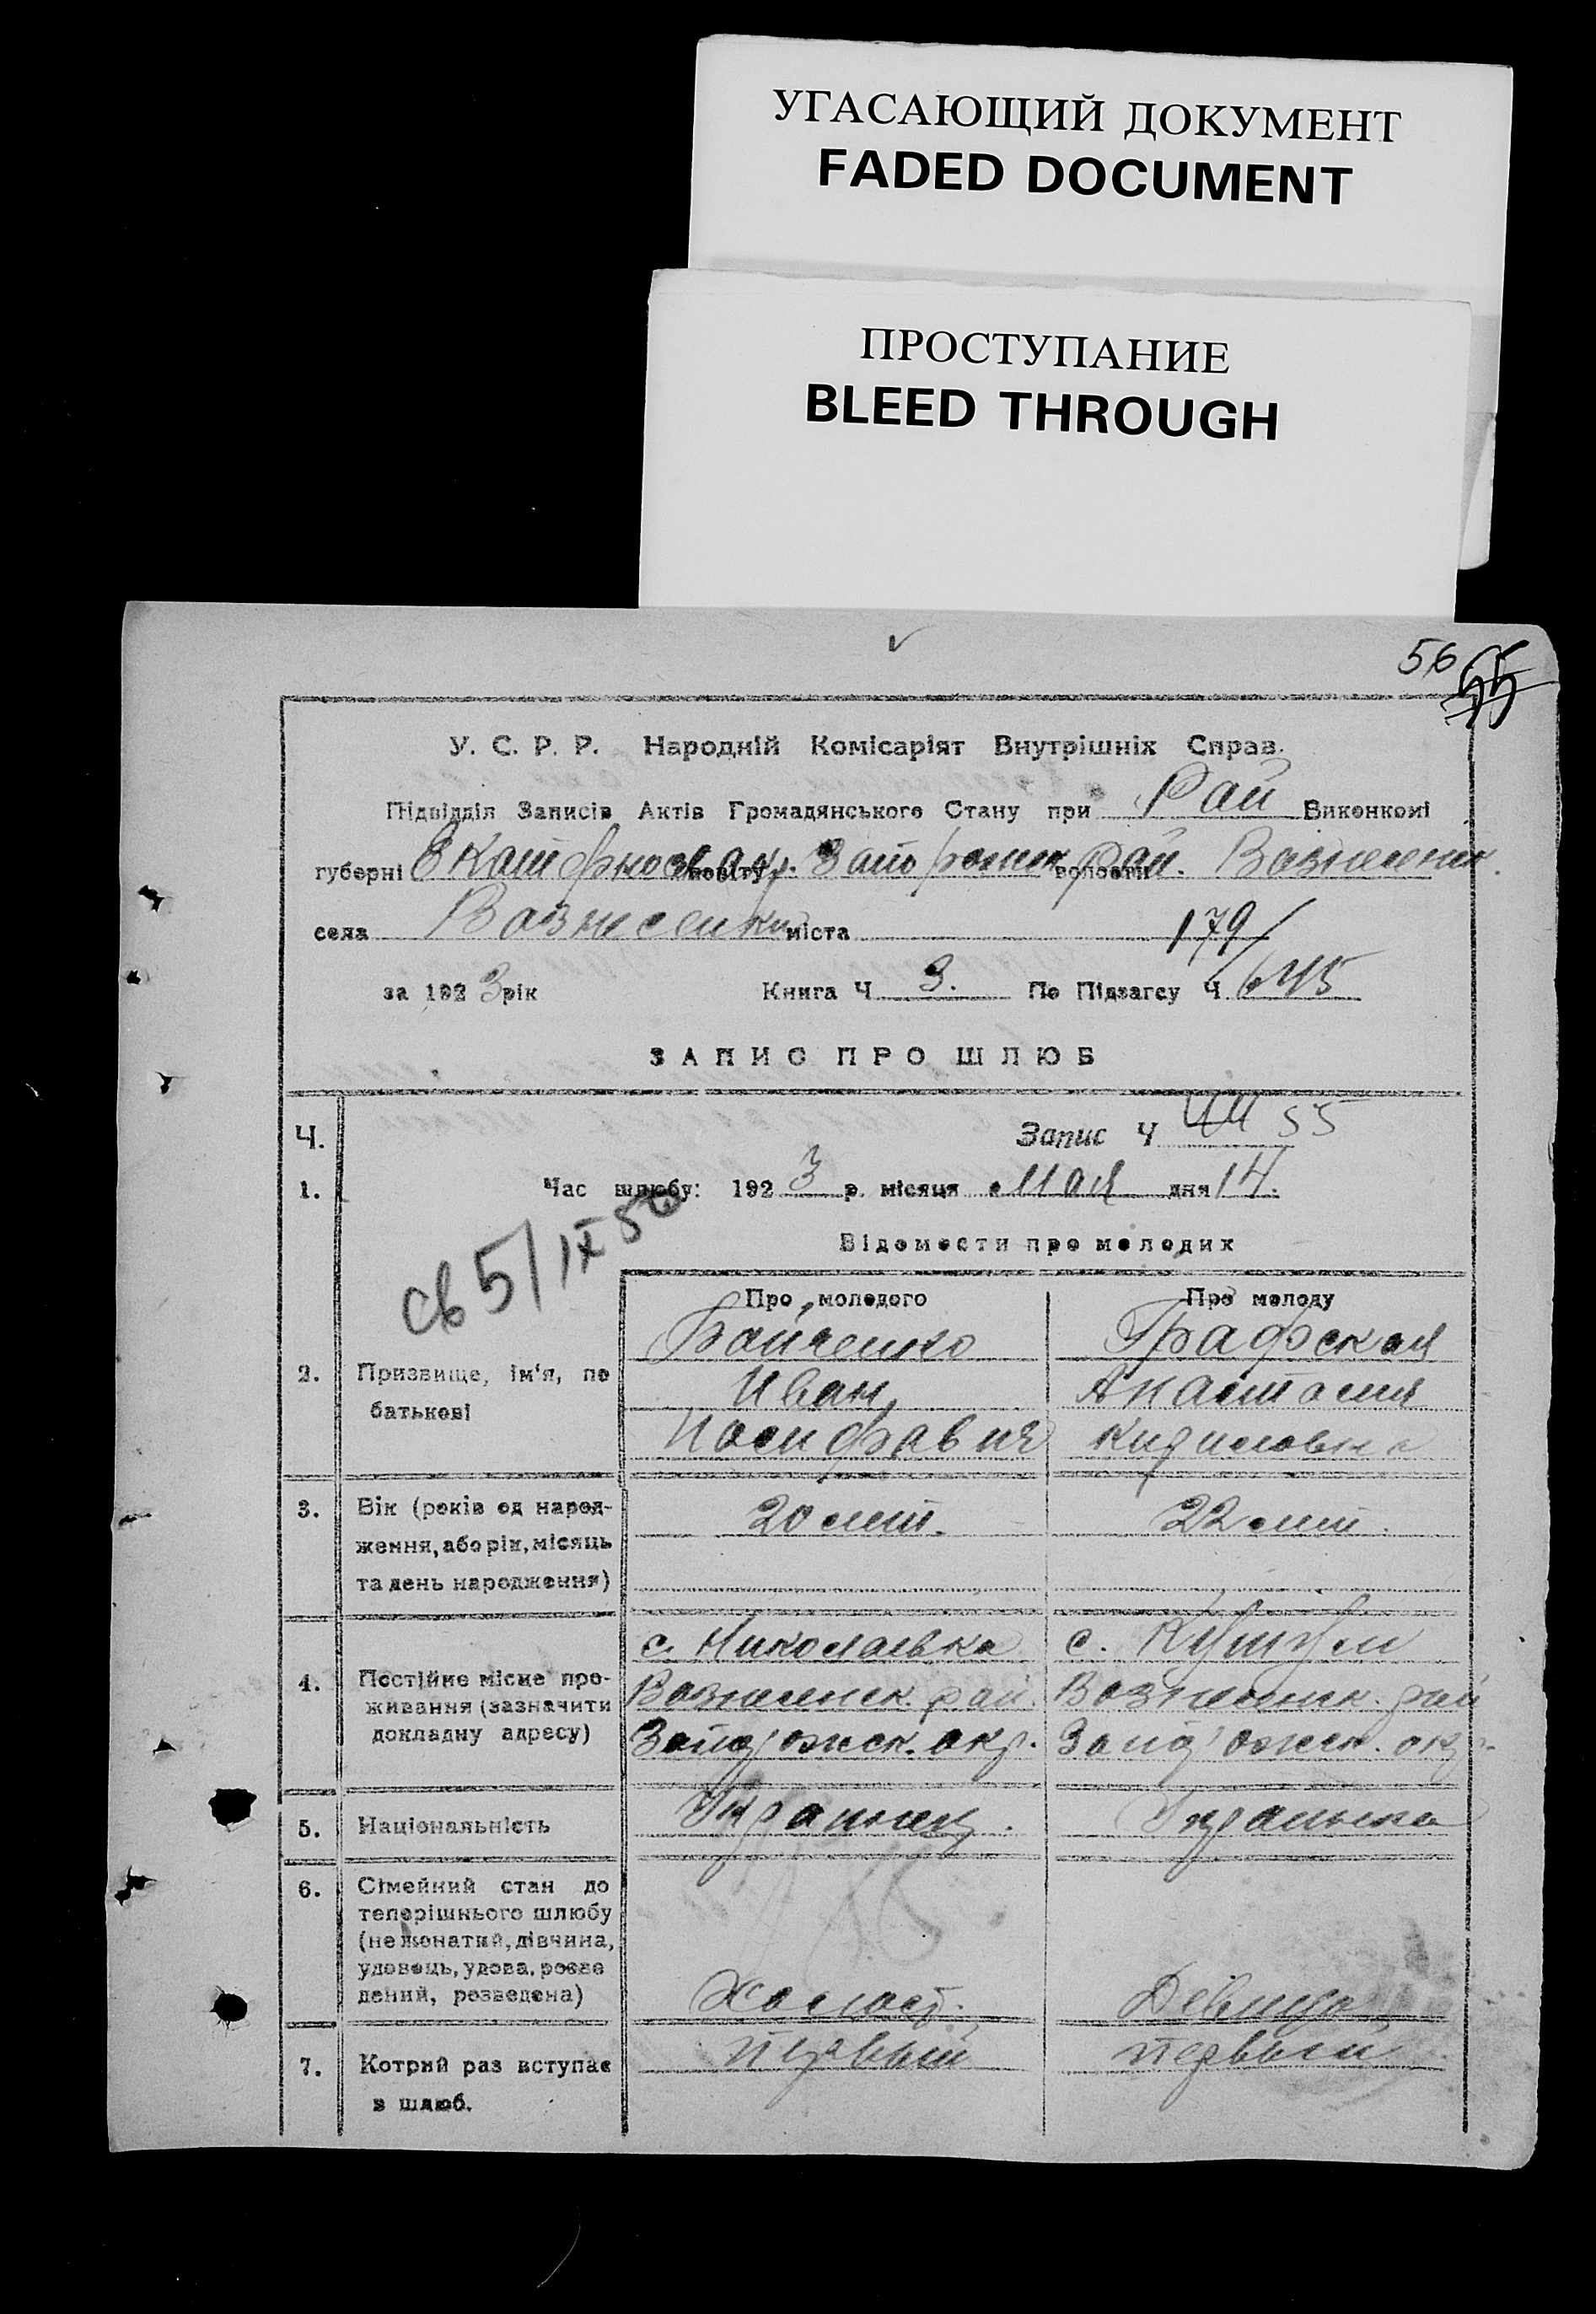 УГАСАЮЩИЙ ДОКУМЕНТ
FADED DOCUMENT
ПРОСТУПАНИЕ
BLEED THROUGH
56 55
У. С. Р. Р. Народній Комісаріят Внутрішніх Справ.
Підвідділ Записів Актів Громадянського Стану при Рай Виконкомі
губерні Екатериносл повіту окр. Запорожск волости рай. Вознесенск.
села Вознесенки міста 179/
за 1923 рік Книга Ч 3. По Підзагсу Ч 645
ЗАПИС ПРО ШЛЮБ
Ч. Запис Ч 55
1. Час шлюбу: 1923 р. місяця мая дня 14.
св 5/IX 56
Відомости про молодих
Про молодого Про молоду
Бойченко Графская
2. Призвище, ім'я, по Иван Анастасия
батькові
Иосифович Кириловна
3. Вік (років од народ- 20 лет. 22 лет.
ження, або рік, місяць
та день народження)
с. Николаевка с. Кушугум
4. Постійне місце про- Вознесенск. рай. Вознесенск. рай
живання (зазначити
докладну адресу) Запорожск. окр. Запорожск. окр.
5. Національність Украинец. Украинка
6. Сімейний стан до
теперішнього шлюбу
(не жонатий, дівчина,
удовець, удова, розве
дений, розведена) Холост. Девица
7. Котрий раз вступає первый первый
в шлюб.